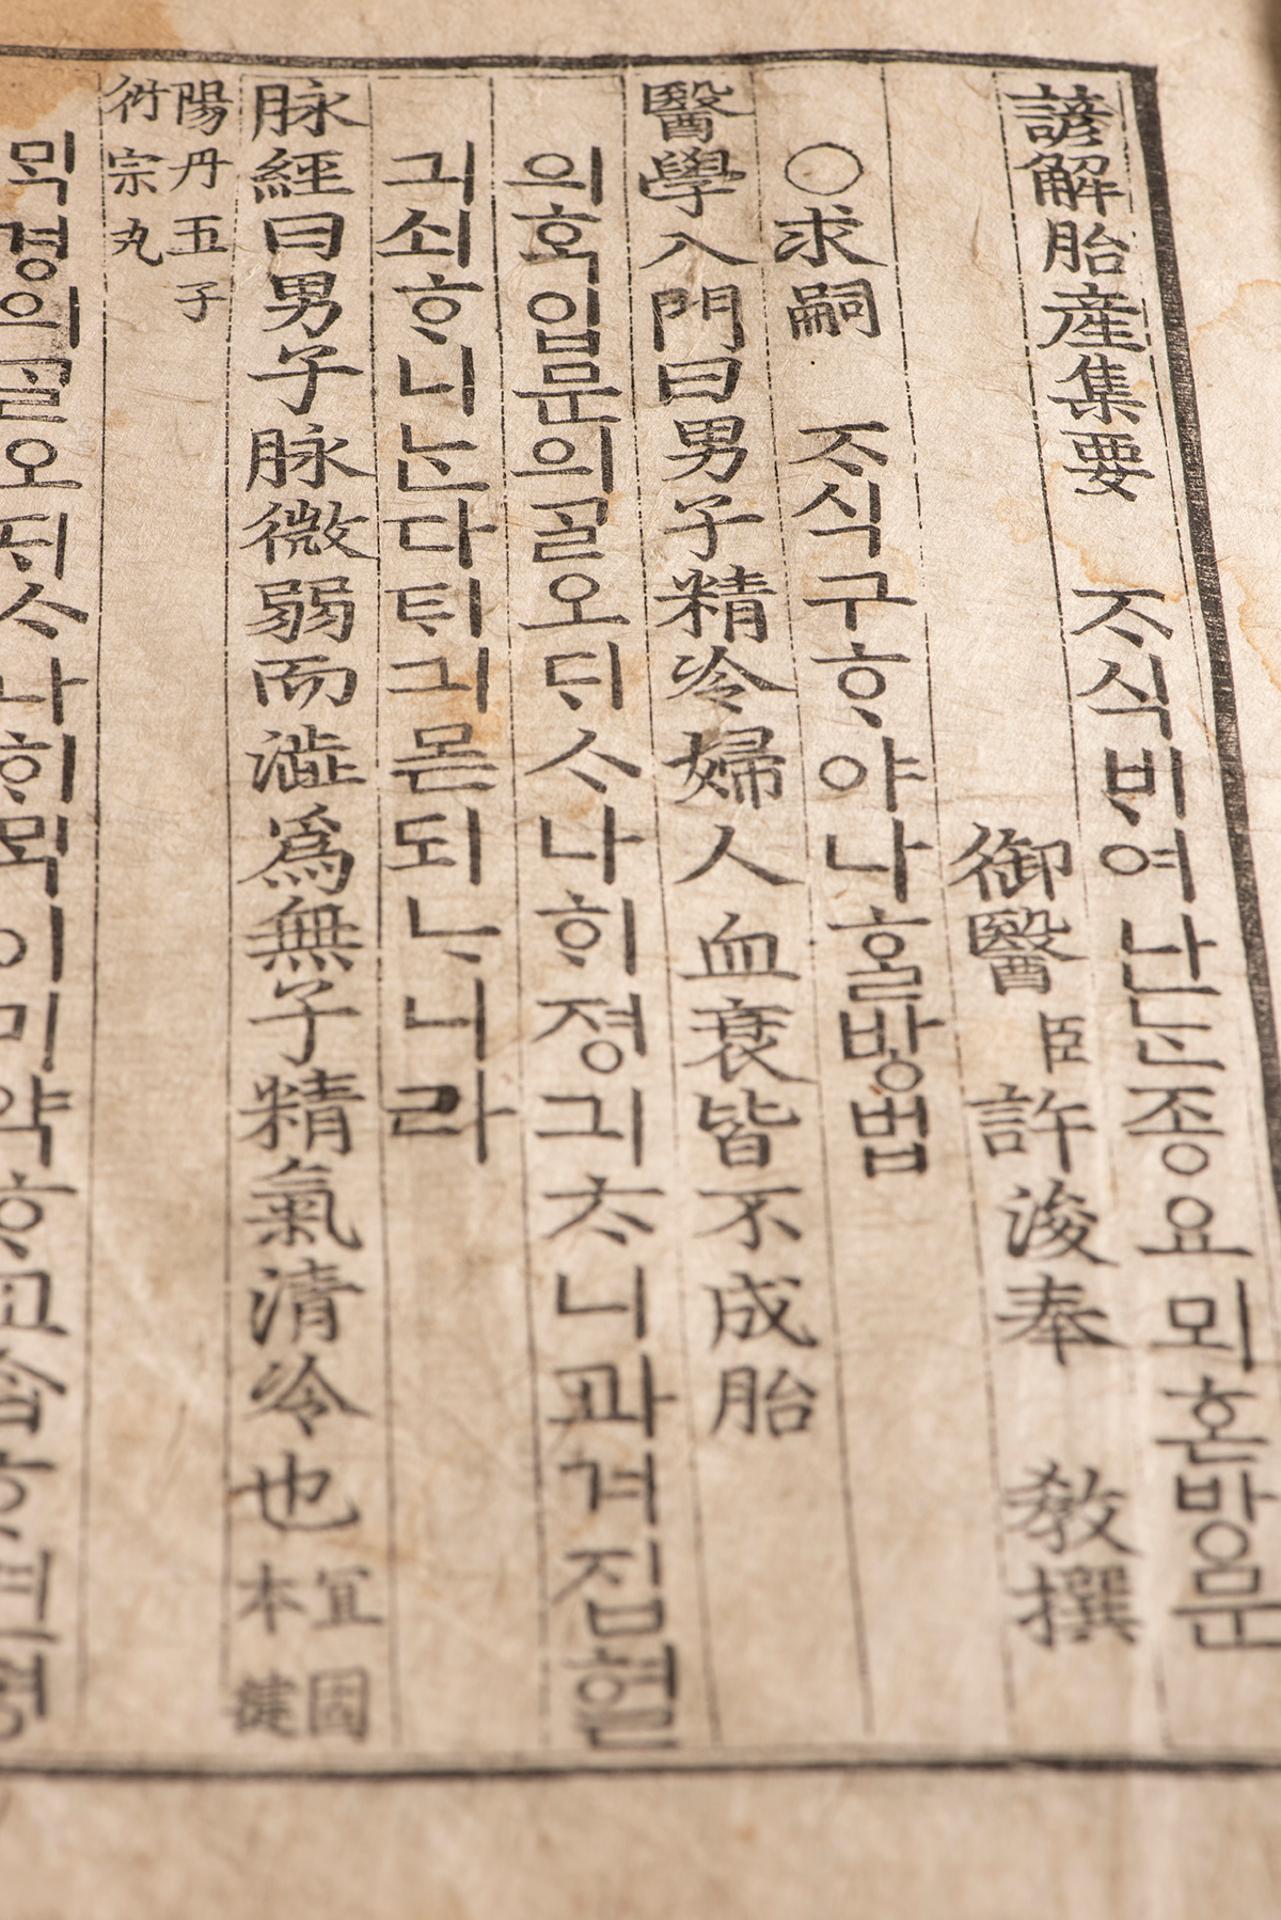 諺解胎産集要 ᄌᆞ식ᄇᆡ여난ᄂᆞᆫ종요뫼혼방문
御醫臣許浚奉 敎撰
○求嗣 ᄌᆞ식구ᄒᆞ야나홀방법
醫學入門曰男子精冷婦人血衰皆不成胎
의ᄒᆞᆨ입문의ᄀᆞᆯ오ᄃᆡᄉᆞ나ᄒᆡ졍긔ᄎᆞ니과겨집혈
긔쇠ᄒᆞ니ᄂᆞᆫ다ᄐᆡ긔몯되ᄂᆞ니라
脉經曰男子脉微弱而澁爲無子精氣清冷也 宜固本健
陽丹五子
衍宗丸
ᄆᆡᆨ경의ᄀᆞᆯ오ᄃᆡᄉᆞ나ᄒᆡᄆᆡᆨ이미약ᄒᆞ고